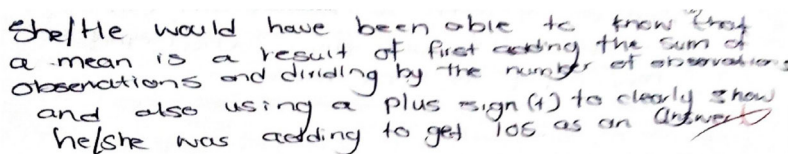 She/He would have been able to know that
a mean is a result of first adding the sum of
observations and dividing by the number of observations
and also using a plus sign (+) to clearly show
he/she was adding to get 105 as an answer